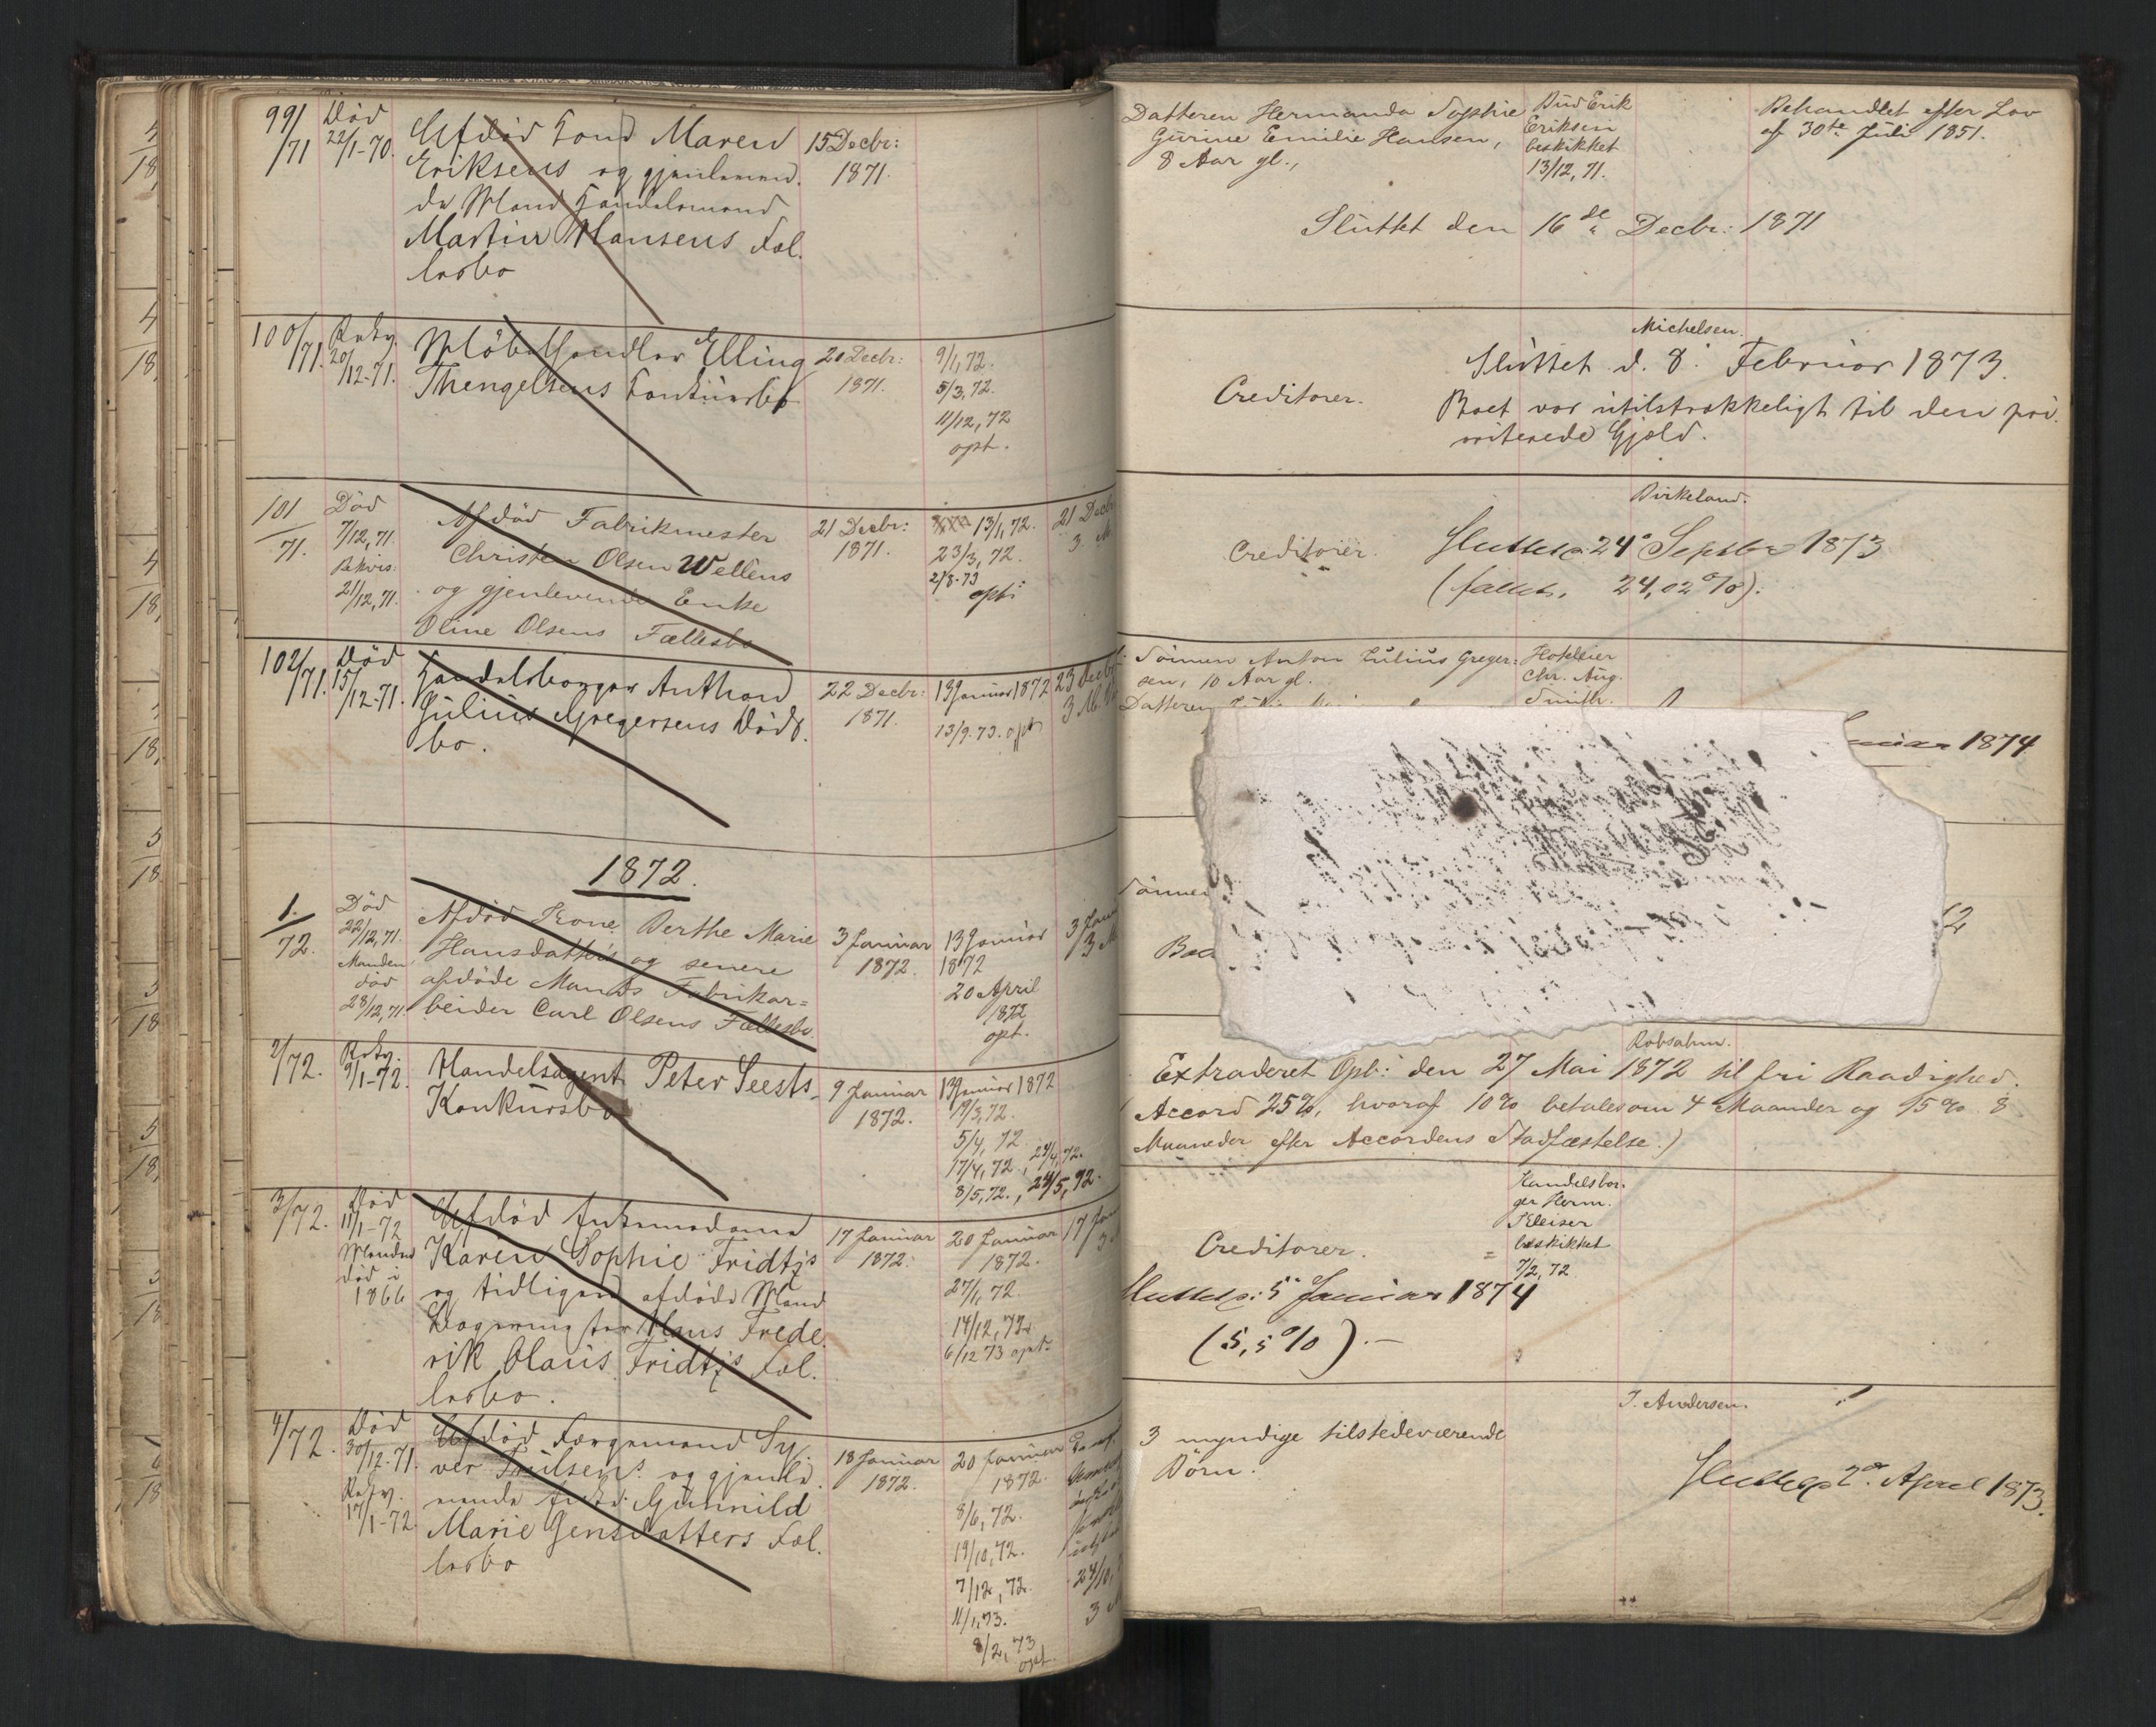 99/71
Død
22/1-70.
Afdød Kone Maren
Eriksens og gjenleven-
de Mand Handelsmand
Martin Hansens Fæl-
lesbo
15 Decbr:
1871.
Datteren Hermanda Sophie
Gurine Emilie Hansen,
8 Aar gl.,
Bud Erik
Eriksen
beskikket
13/12, 71.
Behandlet efter Lov
af 30te Juli 1851.
Sluttet den 16de Decbr: 1871
100/71.
Rekv.
20/12-71.
Møbelhandler Elling
Thengelsens Konkursbo
20 Decbr:
1871.
9/1, 72.
5/3, 72.
11/12, 72
opt.
Creditorer.
Michelsen.
Sluttet d. 8. Februar 1873.
Boet var utilstrækkeligt til den pri-
oriterede Gjæld.
101/71.
Død
7/12, 71.
Rekvis:
21/12, 71.
Afdød Fabrikmester
Christen Olsen Wellens
og gjenlevende Enke
Oline Olsens Fællesbo
21 Decbr:
1871.
13/1, 72.
23/3, 72.
2/8-73
opt:
21 Decbr
3. M
Creditorer.
Birkeland.
Sluttet 24 Septbr 1873
24,02 %).
102/71.
Død
15/12-71.
Handelsborger Anthon
Julius Gregersens Døds-
bo.
22 Decbr:
1871.
13 Januar 1872
13/9. 73. opt
23 Decbr
3 M.
Sönnen Anton Julius Greger-
sen, 10 Aar gl.
Datteren
Hotelleier
Chr. Aug.
Smith.
1874
1872.
1./72.
Død
22/12, 71.
Manden
död
28/12, 71.
Afdöd Kone Berthe Marie
Hansdatters og senere
afdöde Mands Fabrikar=
beider Carl Olsens Fællesbo
3 Januar
1872.
13 Januar
1872
20 April
1872
opt.
3 Janu
3 M
2/72.
Rekv.
9/1-72.
Handelsagent Peter Seests
Konkursbo
9 Januar
1872.
13 Januar 1872
19/3, 72.
5/4, 72
17/4, 72., 24/4, 72.
8/5, 72., 24/5, 72.
Robsahm.
Extraderet Opb: den 27 Mai 1872 til fri Raadighed.
(Accord 25%, hvoraf 10% betales om 4 Maander og 15% 8
Maaneder efter Accordens Stadfæstelse.)
3/72.
Død
11/1-72
Manden
død i
1866
Afdød Enkemadame
Karen Sophie Fridtz's
og tidligere afdøde Mand
Hans Frede-
rik Olaus Fridtz's Fæl-
lesbo.
17 Januar
1872.
20 Januar
1872.
27/1, 72.
14/12, 72.
6/12 73 opt.
17 Jan
3
Creditorer.
Handelsbor-
ger Herm.
Kleiser
beskikket
7/2, 72
Sluttet: 5 Januar 1874
(5,5 %).—
4/72.
Død
30/12-71.
Rekv.
17/1-72.
Afdød Færgemand Sy-
ver og gjenle-
vende Enke Gunnild
Marie Jensdatters Fæl-
lesbo
18 Januar
1872.
20 Januar
1872.
8/6, 72.
19/10, 72.
7/12, 72.
11/1, 73.
8/2, 73
opt.
3 M
J. Andersen.
3 myndige tilstedeværende
Börn.
Sluttet 2. April 1873.